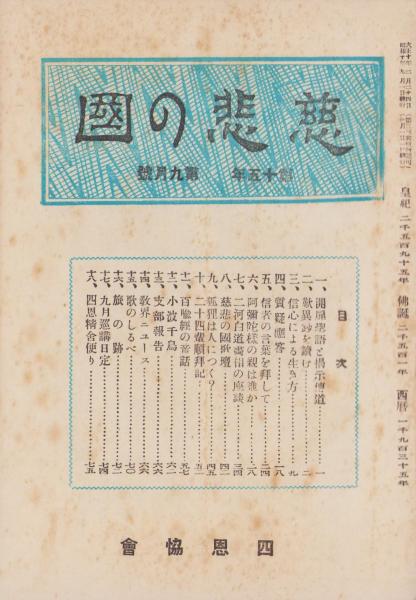 慈悲の國
第十五年 第九月號
皇祀 二千五百九十五年 佛誕 二千五百一年 西曆 一千九百三十五年
目次
一、開扉聖語と揭示傳道……一
二、歎異鈔を讀む……二
三、信心による生き方……九
四、質疑應答……一八
五、信者の言葉を拜して……二四
六、阿彌陀樣の親は誰か……二八
七、二河白道譬喩の座談……三四
八、慈悲の國歌壇……四二
九、狐狸は人につく?……四五
十、二十四輩順拜記……五一
十一、百喩經の童話……五七
十二、小波千鳥……六二
十三、支部報告……六六
十四、敎界ニュース……六六
十五、歌のしるべ……七〇
十六、旅の跡……七二
十七、九月巡講日定……七四
十八、四恩精舍便り……七五
四恩協會